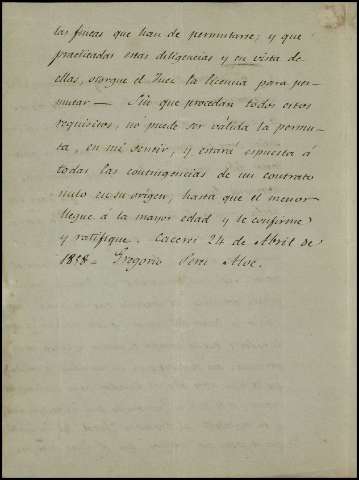 las fincas que han de permutarse; y que
practicadas estas diligencias y en vista de
ellas, otorgue el Juez la licencia para per-
mutar — Sin que procedan todos estos
requisitos, no puede ser válida la permu-
ta, en mi sentir, y estará espuesta á
todas las contingencias de un contrato
nulo en su origen, hasta que el menor
llegue á la mayor edad y le confirme
y ratifique. Caceres 24 de Abril de
1858 = Gregorio Perez Aloe.